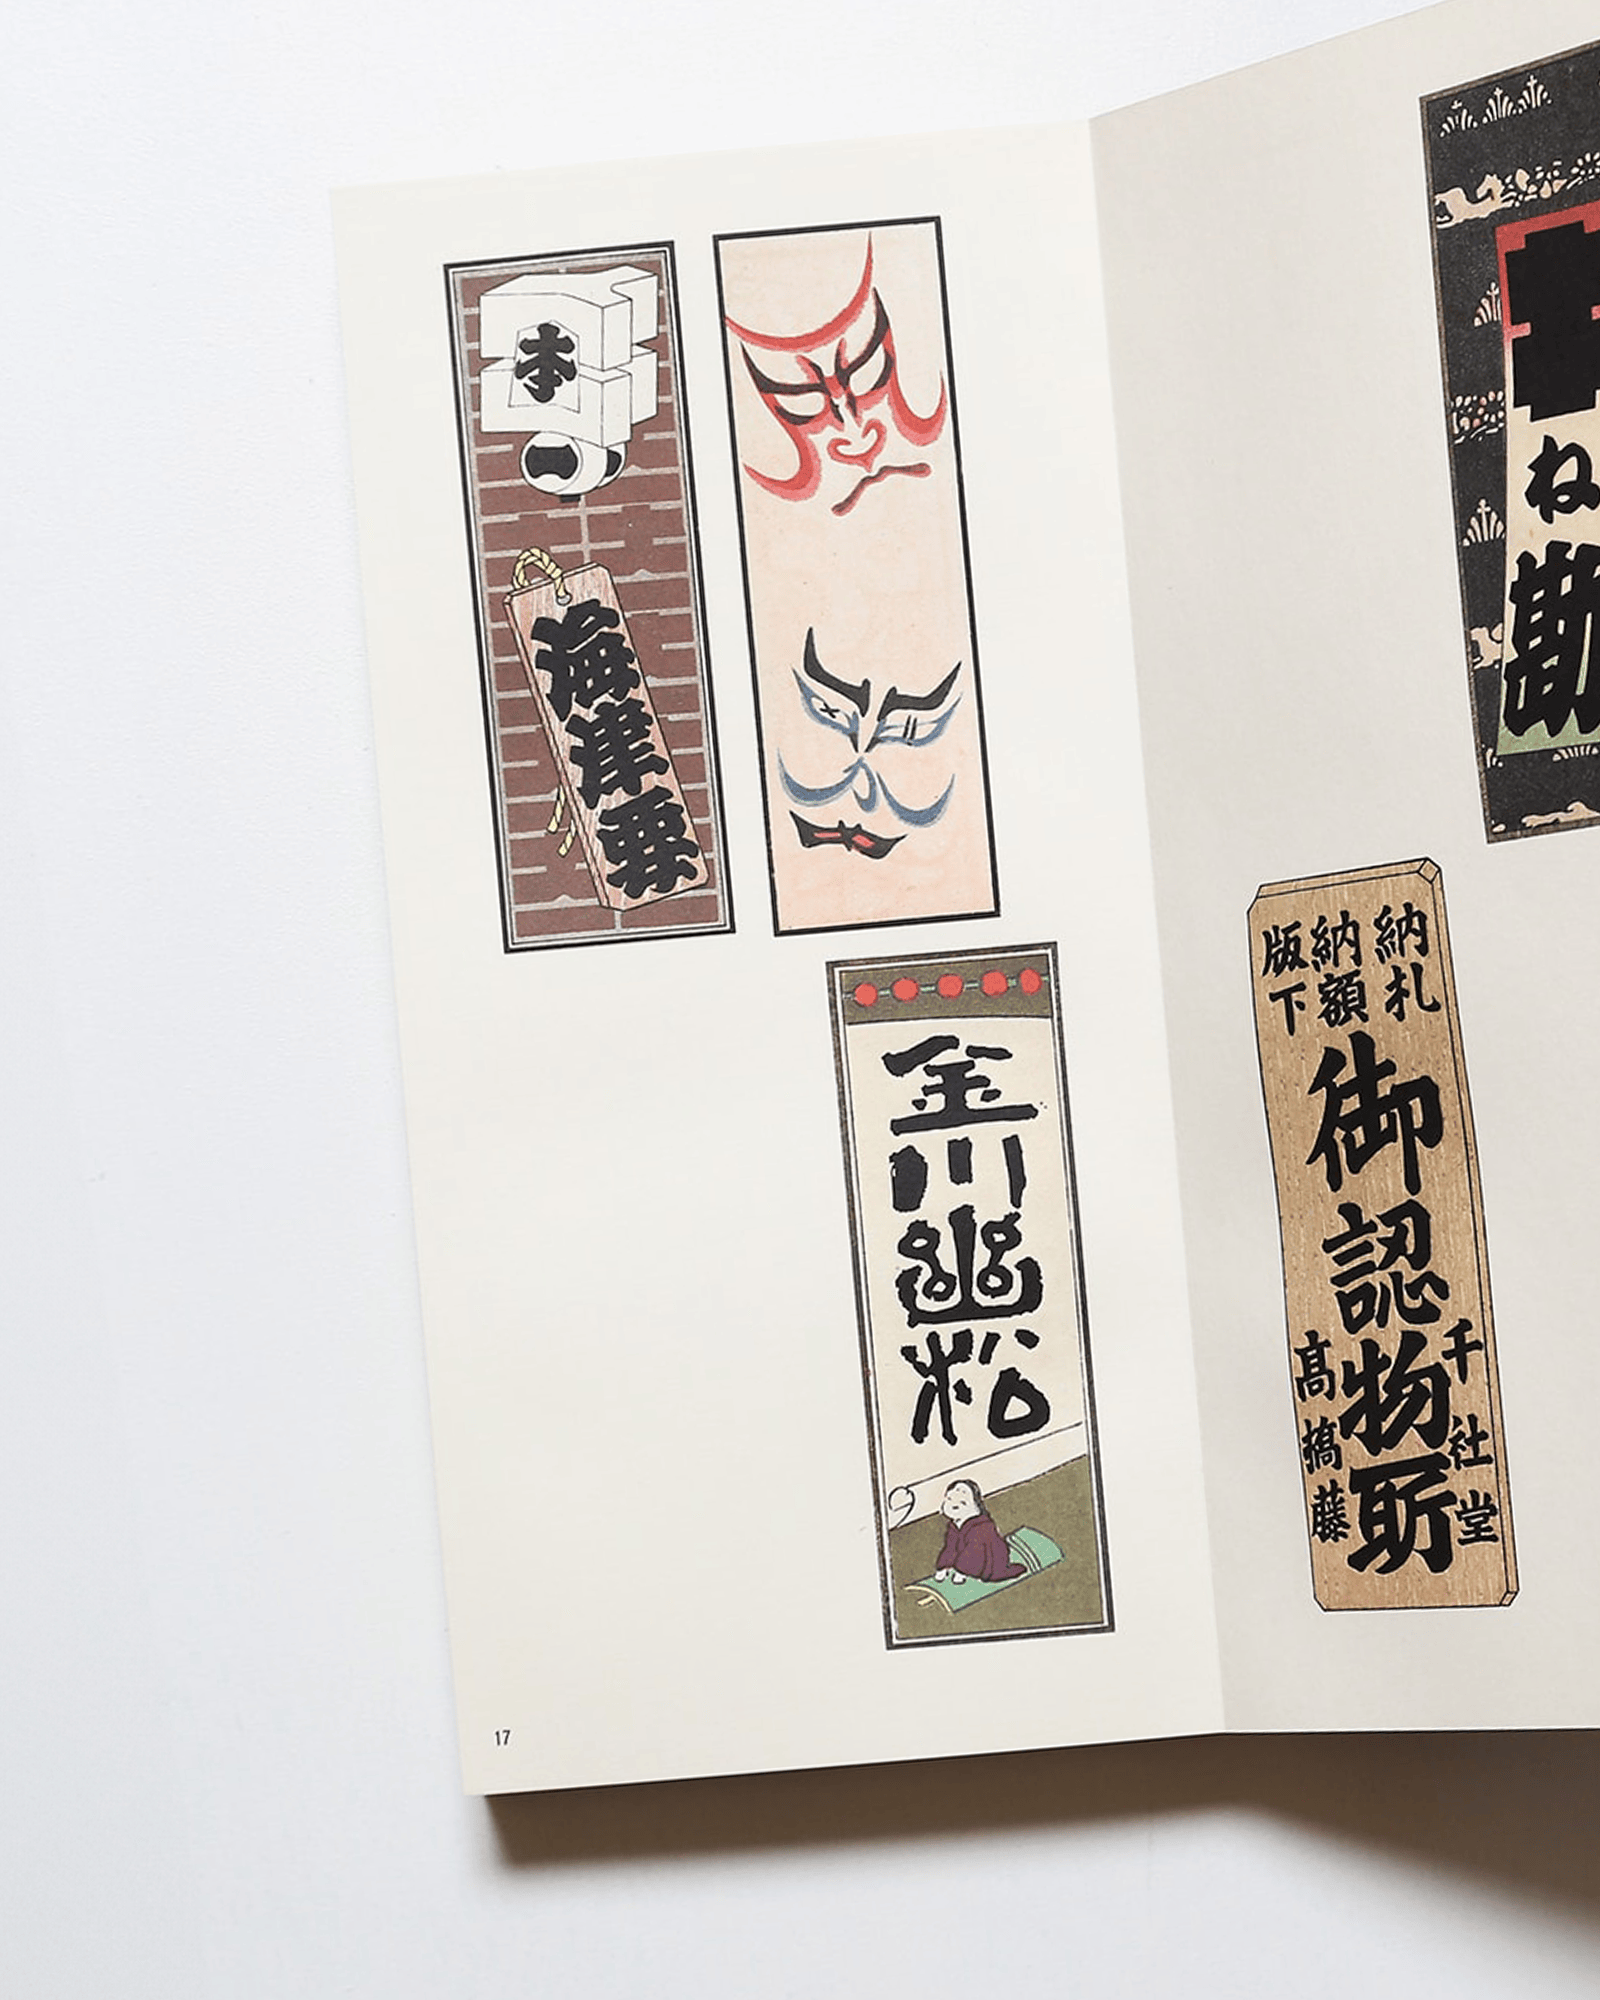 本
海津要
金川幽松
17
ね勘
納札
納額
版下
御認物所
千社堂
髙橋藤